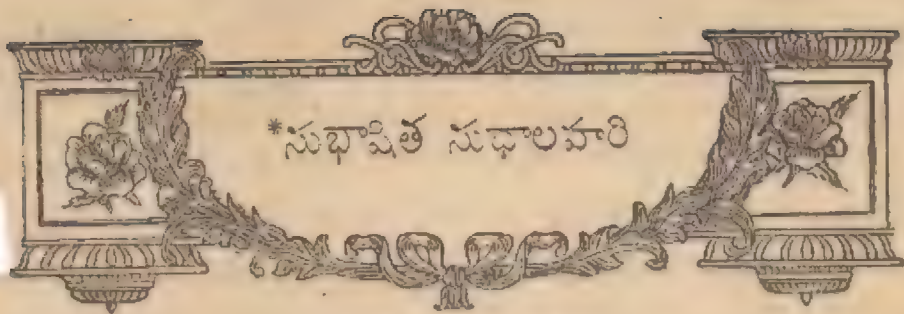 *సుభాషిత సుధాలహరి